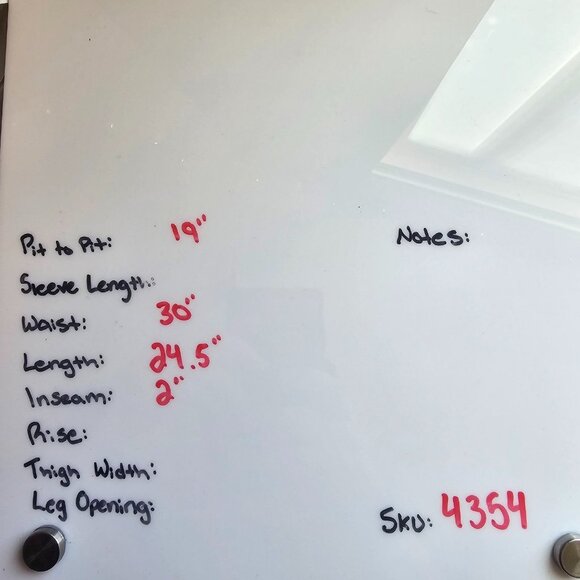 Pit to Pit: 19"
Notes:
Sleeve Length:
Waist: 30"
Length: 24.5"
Inseam: 2"
Rise:
Thigh Width:
Leg Opening:
SKU: 4354